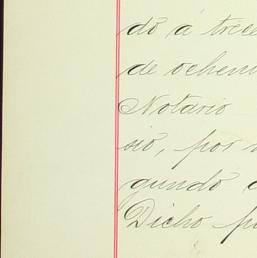 dó á trece
de ochen
Notario
sió, por
gundo
Dicho p